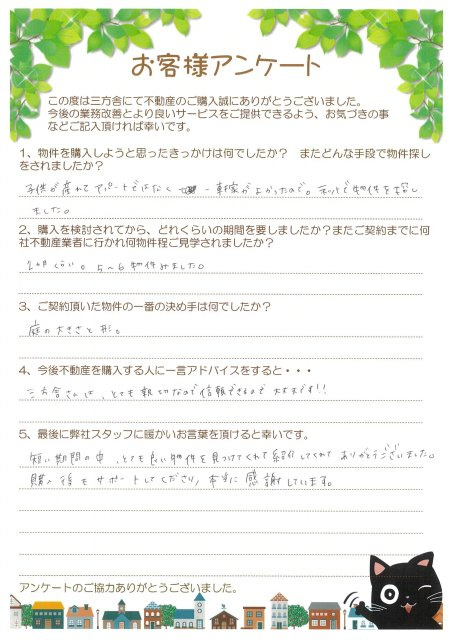 お客様アンケート
この度は三方舎にて不動産のご購入誠にありがとうございました。
今後の業務改善とより良いサービスをご提供できるよう、お気づきの事
などご記入頂ければ幸いです。
1、物件を購入しようと思ったきっかけは何でしたか？　またどんな手段で物件探し
をされましたか？
子供が産れてアパートではなく 一軒家がよかったので。ネットで物件を探し
ました。
2、購入を検討されてから、どれくらいの期間を要しましたか？またご契約までに何
社不動産業者に行かれ何物件程ご見学されましたか？
2ヶ月くらい。5〜6物件みました。
3、ご契約頂いた物件の一番の決め手は何でしたか？
庭の大きさと形。
4、今後不動産を購入する人に一言アドバイスをすると・・・
三方舎さんは、とても親切なので信頼できるので大丈夫です!!
5、最後に弊社スタッフに暖かいお言葉を頂けると幸いです。
短い期間の中、とても良い物件を見つけてくれて紹介してくれてありがとうございました。
購入後もサポートしてくださり、本当に感謝しています。
アンケートのご協力ありがとうございました。